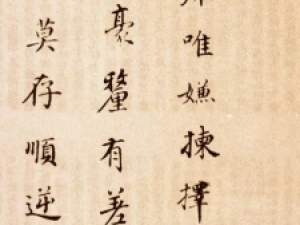 唯嫌揀擇
毫釐有差
莫存順逆